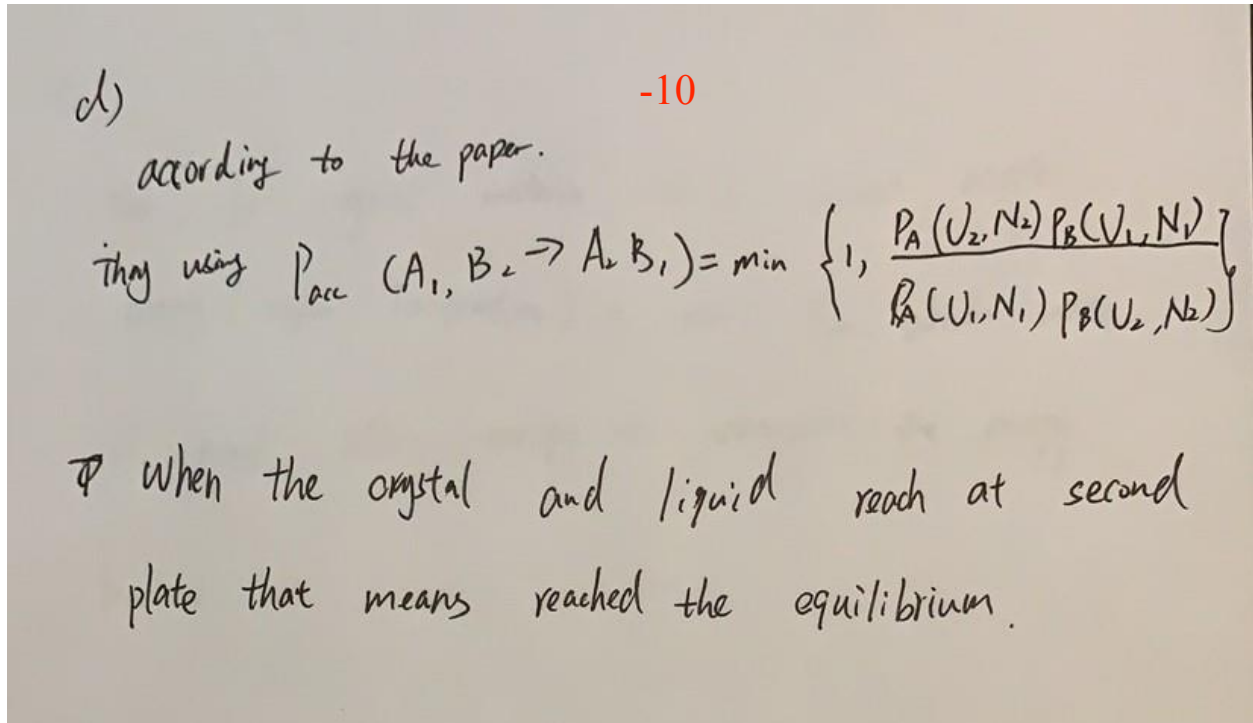 d)
-10
according to the paper.
they using Pacc (A₁, B₂ → A₂ B₁) = min {1, P_A(U₂, N₂) P_B(U₁, N₁) / P_A(U₁, N₁) P_B(U₂, N₂)}
When the crystal and liquid reach at second
plate that means reached the equilibrium.